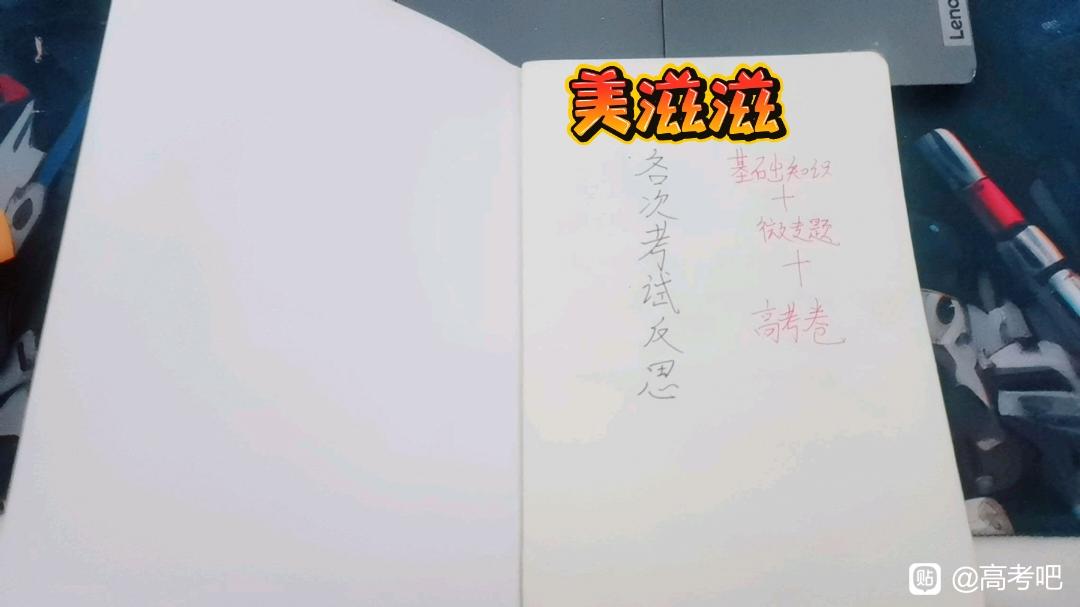 美滋滋
各次考试反思
基础知识
+
微专题
+
高考卷
Leno
贴 @高考吧